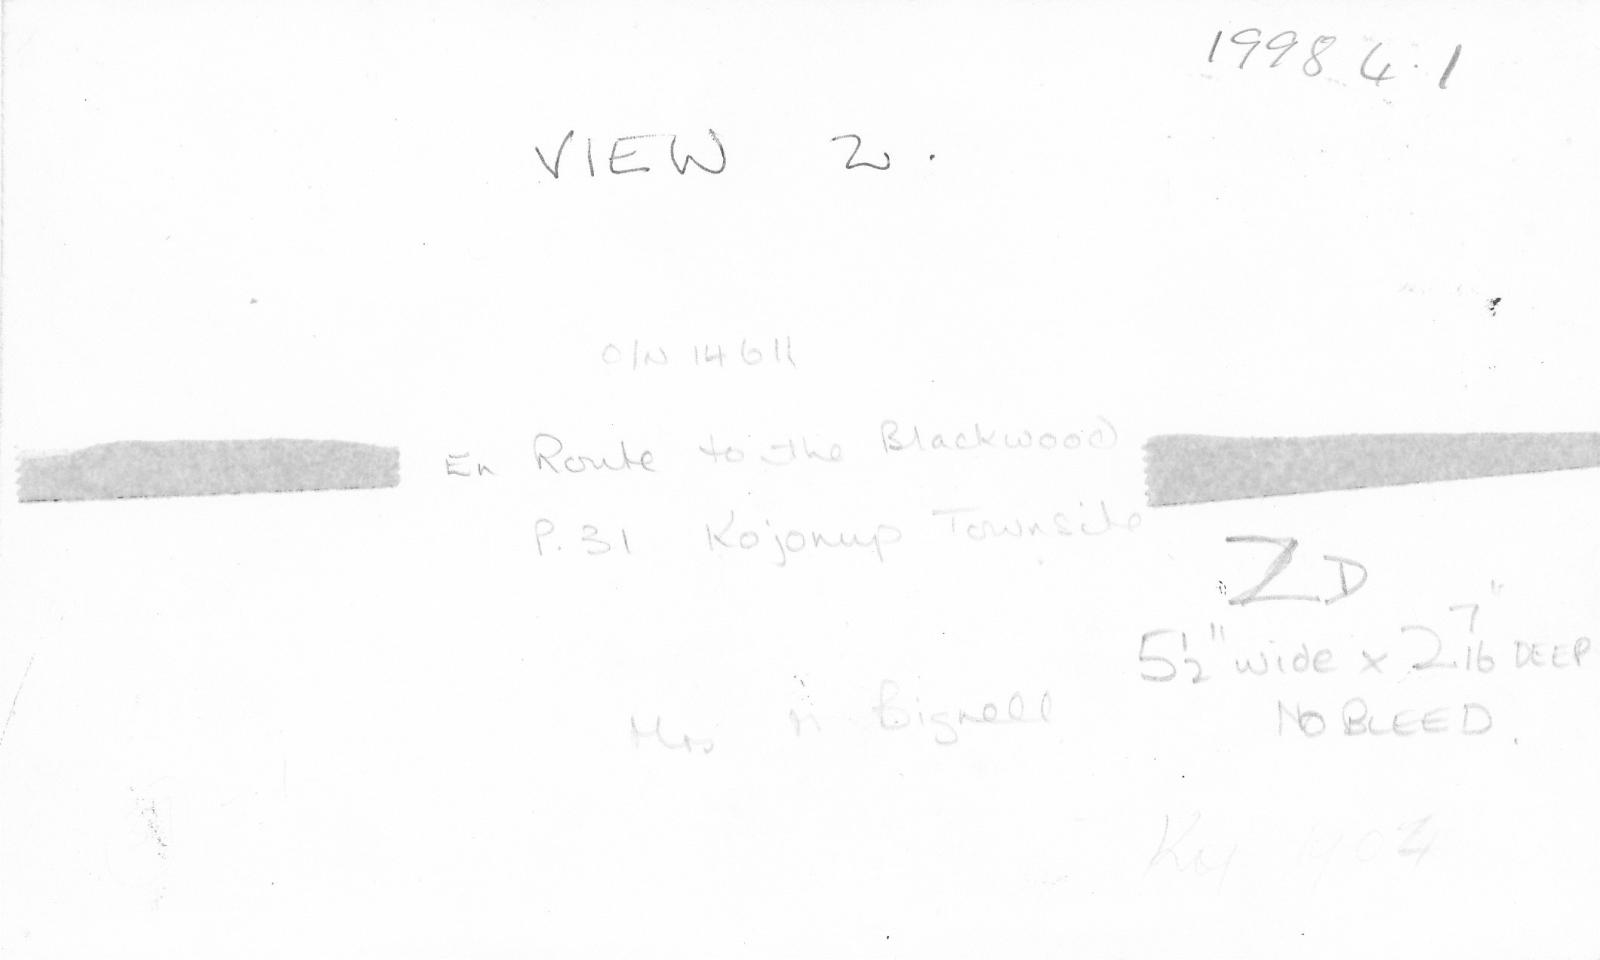 1998 4.1
VIEW 2.
O/N 14611
En Route to the Blackwood
P.31 Kojonup Townsite
ZD
5½" wide x 2 7/16" DEEP
NO BLEED.
Mrs Bignell